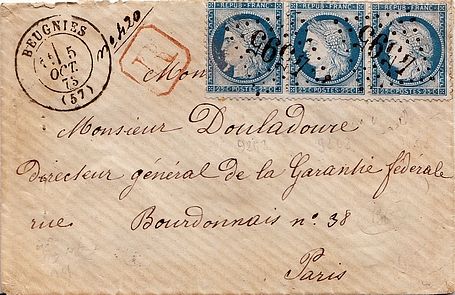 BEUGNIES
5
OCT
75
(57)
N° 420
REPUB · FRANC · REPUB · FRANC · REPUB · FRANC ·
25 C · POSTES · 25 C 25 C · POSTES · 25 C 25 C · POSTES · 25 C
Mon
Monsieur Douladoure
Directeur général de la Garantie fédérale
rue Bourdonnais n° 38
Paris